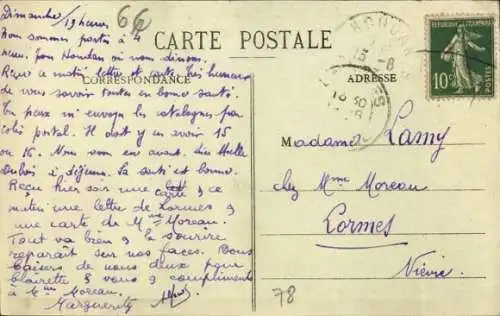 Dimanche
19 heures
66
Nous sommes partis à 4
heures pour Houdan où nous dinons.
Reçu ce matin lettre et carte. Très heureux
de vous savoir toutes en bonne santé.
Tu peux m'envoyer les catalogues par
colis postal. Il doit y en avoir 15
ou 16. Nous avons eu
Dubois à déjeuner. La santé est bonne.
Reçu hier soir une carte & ce
matin une lettre de Lormes &
une carte de Mme Moreau.
Tout va bien & le sourire
reparait sur nos faces. Bons
baisers de nous deux pour
Clairette & vous & compliments
à Mme Moreau.
Marguerite
CARTE POSTALE
CORRESPONDANCE
ADRESSE
HOUDAN
REPUBLIQUE FRANCAISE
10c
POSTES
Madame Lamy
chez Mme Moreau
Lormes
Nièvre
78